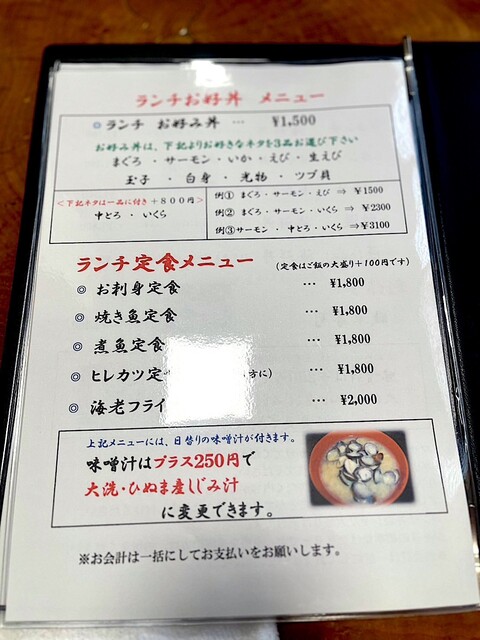 ランチお好丼 メニュー
◎ ランチ お好み丼 … ¥1,500
お好み丼は、下記よりお好きなネタを3品お選び下さい
まぐろ ・ サーモン ・ いか ・ えび ・ 生えび
玉子 ・ 白身 ・ 光物 ・ ツブ貝
＜下記ネタは一品に付き＋８００円＞
中とろ ・ いくら
例① まぐろ・サーモン・えび ⇒ ¥1500
例② まぐろ・サーモン・いくら ⇒ ¥2300
例③サーモン ・ 中とろ・いくら ⇒¥3100
ランチ定食メニュー (定食はご飯の大盛り+100円です)
◎ お刺身定食 … ¥1,800
◎ 焼き魚定食 … ¥1,800
◎ 煮魚定食 … ¥1,800
◎ ヒレカツ定 方に) … ¥1,800
◎ 海老フライ … ¥2,000
上記メニューには、日替りの味噌汁が付きます。
味噌汁はプラス250円で
大洗・ひぬま産しじみ汁
に変更できます。
※お会計は一括にしてお支払いをお願いします。